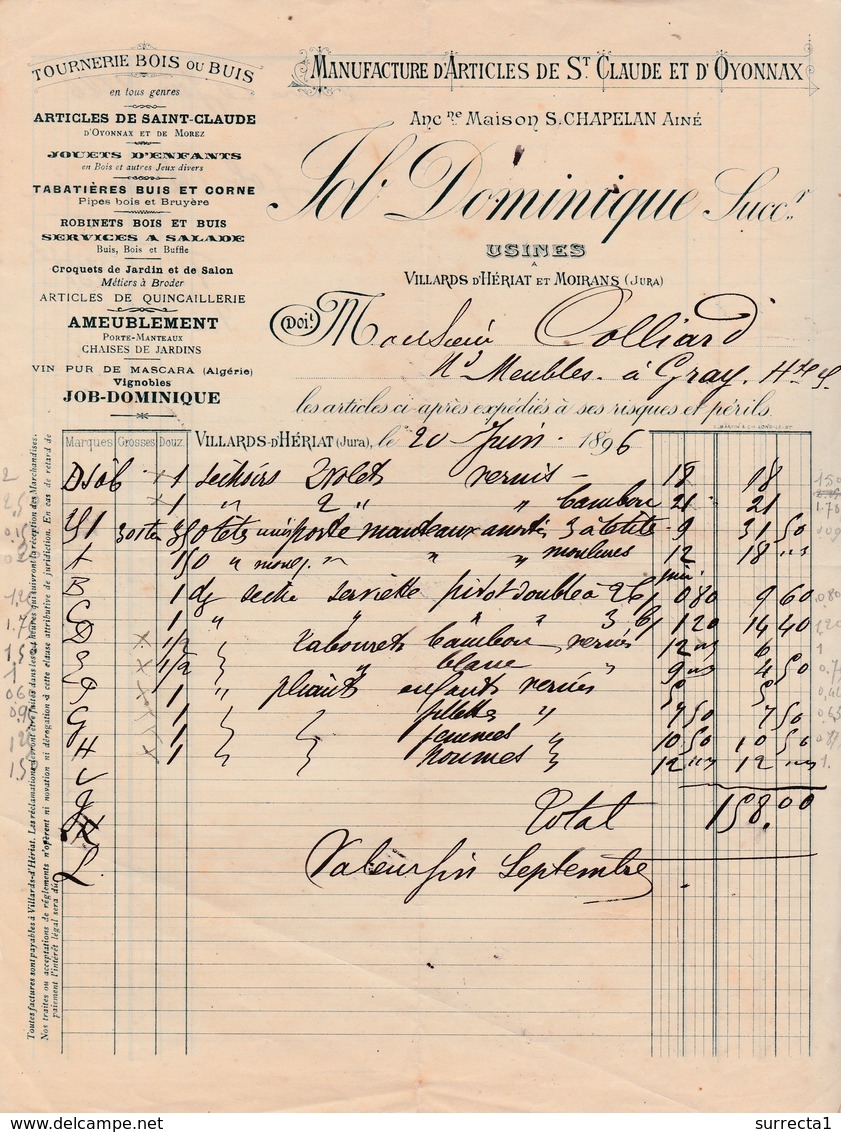 TOURNERIE BOIS OU BUIS
en tous genres
ARTICLES DE SAINT-CLAUDE
D'OYONNAX ET DE MOREZ
JOUETS D'ENFANTS
en Bois et autres Jeux divers
TABATIÈRES BUIS ET CORNE
Pipes bois et Bruyère
ROBINETS BOIS ET BUIS
SERVICES A SALADE
Buis, Bois et Buffle
Croquets de Jardin et de Salon
Métiers à Broder
ARTICLES DE QUINCAILLERIE
AMEUBLEMENT
PORTE-MANTEAUX
CHAISES DE JARDINS
VIN PUR DE MASCARA (Algérie)
Vignobles
JOB-DOMINIQUE
MANUFACTURE D'ARTICLES DE ST CLAUDE ET D'OYONNAX
Ancne Maison S. CHAPELAN AINÉ
Job. Dominique Succr
USINES
A
VILLARDS D'HÉRIAT ET MOIRANS (JURA)
Doit Monsieur Colliard
Nd Meubles à Gray. Hte S.
les articles ci-après expédiés à ses risques et périls.
Marques Grosses Douz. VILLARDS-D'HÉRIAT (Jura), le 20 Juin 1896
1 sechoirs 3 volets vernis 18 18
1 " 2 " " bambou 21 21
têtes porte manteaux 3 à tête 9 31 50
" " " moulures 12 18 "
B 1 dz seche serviette pivot double à 2 b/ 0 80 9 60
C 1 " " " " 3 b/ 1 20 14 40
D 1/2 tabourets bambou vernis 12 " 6
E 1/2 " blanc " 9 " 4 50
1 " pliants enfants vernis 5 5
G 1 fillettes " 7 50 7 50
H 1 femmes " 10 50 10 50
1 hommes 12 " 12 "
Total 158.00
L
Valeur fin Septembre
Toutes factures sont payables à Villards-d'Hériat. Les réclamations devront être faites dans les 24 heures qui suivront la réception des Marchandises.
Nos traites ou acceptations de règlements n'opèrent ni novation ni dérogation à cette clause attributive de juridiction. En cas de retard de
paiement l'intérêt légal sera dû.
surrecta1
www.delcampe.net